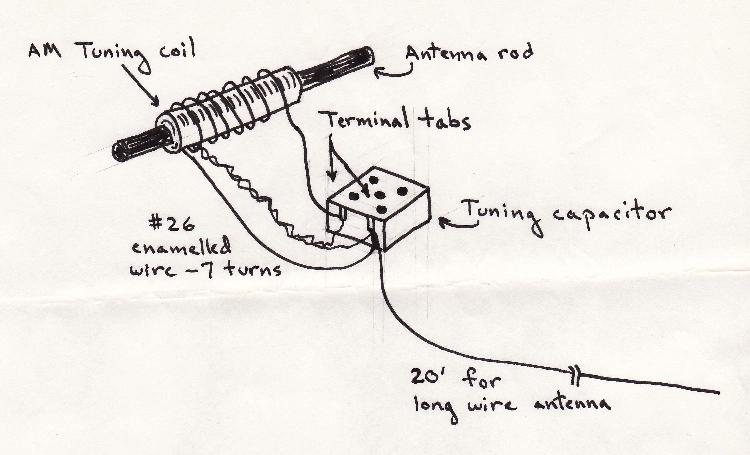 AM Tuning coil
Antenna rod
Terminal tabs
Tuning capacitor
#26
enamelled
wire - 7 turns
20' for
long wire antenna